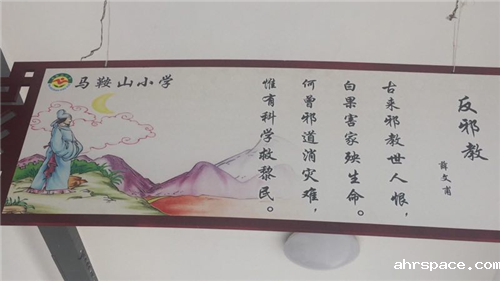 马鞍山小学
反邪教
薛文甫
古来邪教世人恨,
自果害家殃生命。
何曾邪道消灾难,
惟有科学救黎民。
ahrspace.com